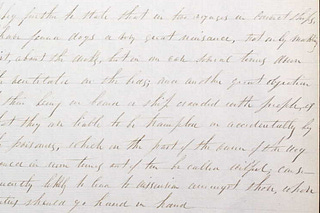 beg further to state that in two voyages in Convict Ships,
have found dogs a very great nuisance, not only making
dirt, about the decks, but in an ask several times down
ventilator on the beds; and another great objection
their being on board a ship crowded with people, is
that they are liable to be trampled on accidentally by
persons, which in the part of the owner of the dog
in nine times out of ten be called wilful, conse
quently likely to lead to dissention amongst those, whose
duties should go hand in hand